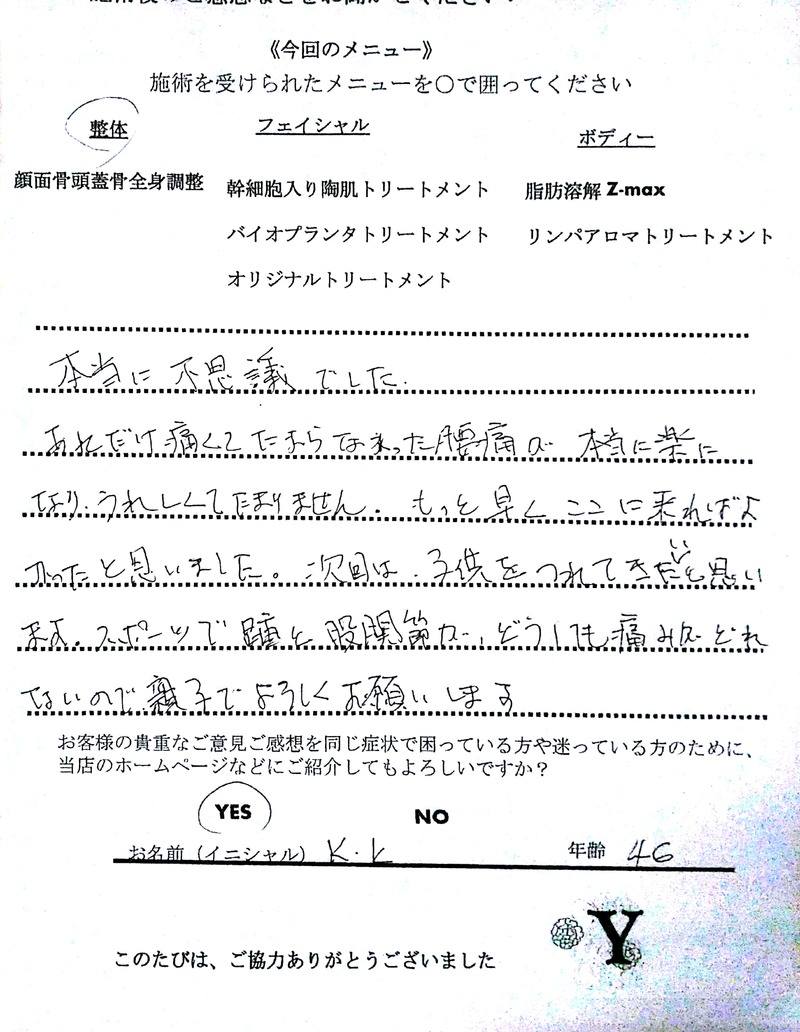 《今回のメニュー》
施術を受けられたメニューを○で囲ってください
整体 フェイシャル ボディー
顔面骨頭蓋骨全身調整 幹細胞入り陶肌トリートメント 脂肪溶解 Z-max
バイオプランタトリートメント リンパアロマトリートメント
オリジナルトリートメント
本当に不思議でした.
あれだけ痛くてたまらなかった腰痛が 本当に楽に
なり、うれしくてたまりません。もっと早くここに来ればよ
かったと思いました。次回は、子供をつれてきたいと思い
ます。スポーツで踵と股関節が、どうしても痛みがとれ
ないので、親子でよろしくお願いします
お客様の貴重なご意見ご感想を同じ症状で困っている方や迷っている方のために、
当店のホームページなどにご紹介してもよろしいですか？
YES NO
お名前（イニシャル） K.K 年齢 46
Y
このたびは、ご協力ありがとうございました